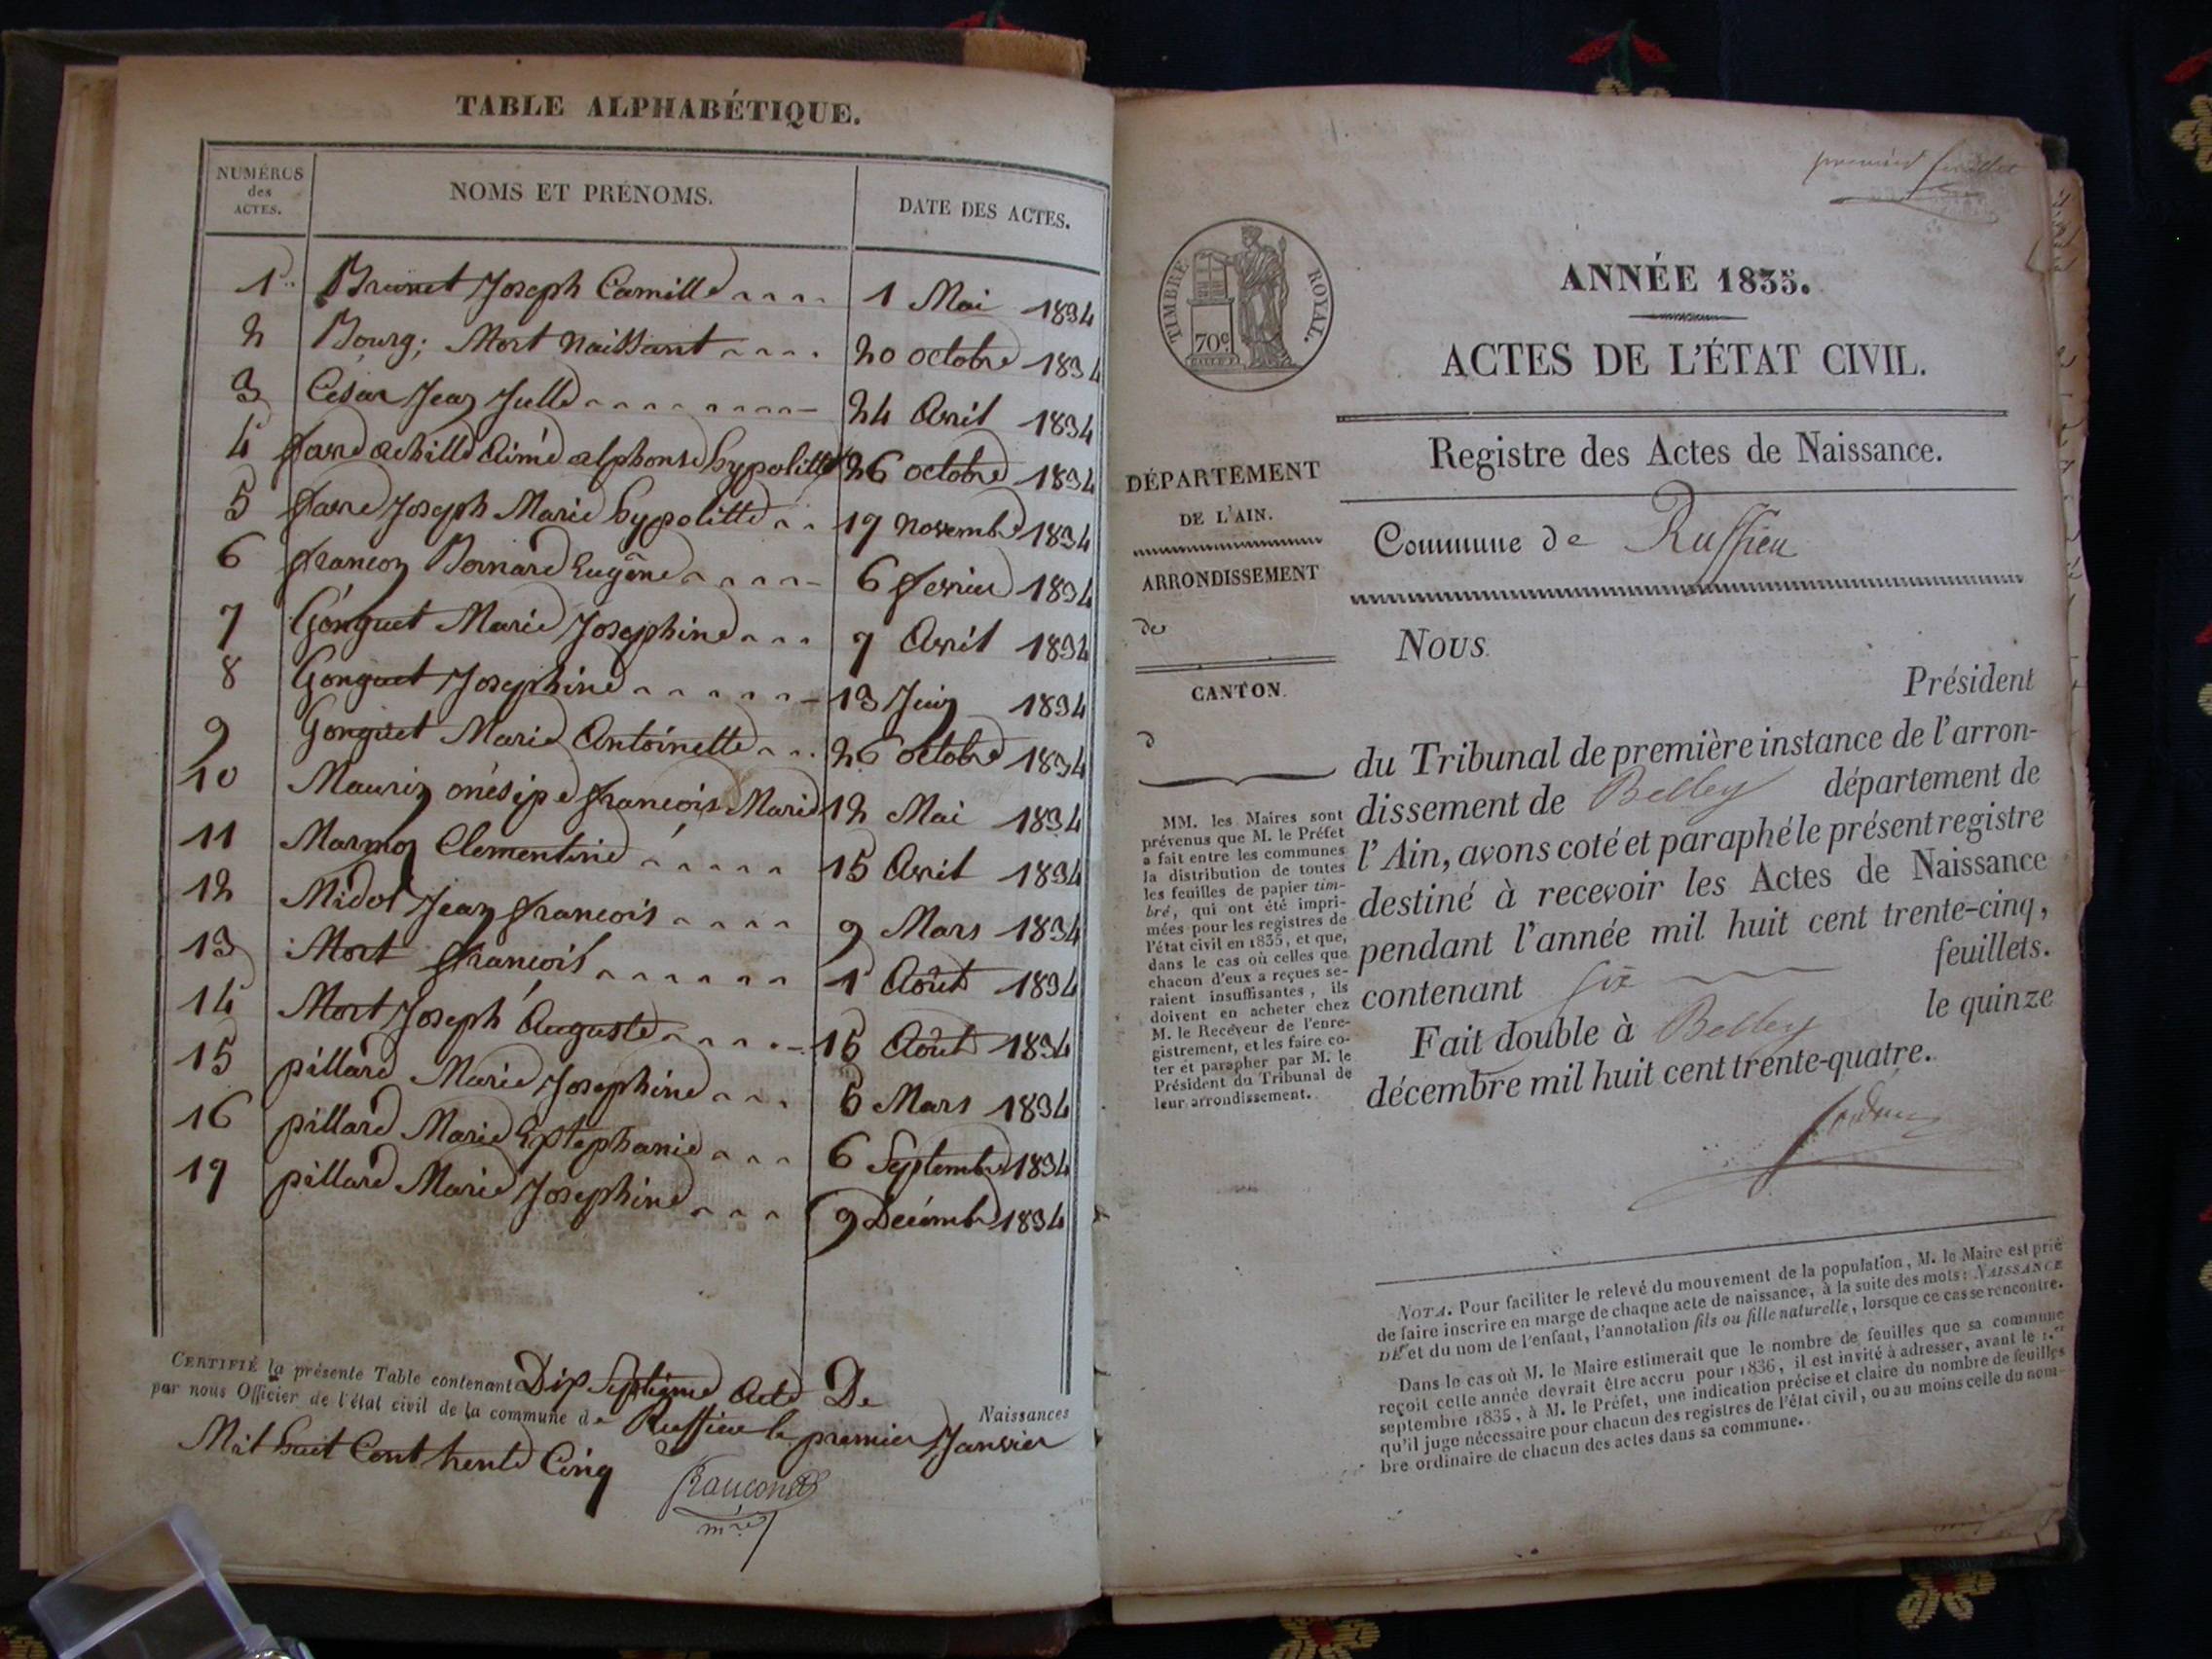 TABLE ALPHABÉTIQUE.
NUMÉROS des ACTES. NOMS ET PRÉNOMS. DATE DES ACTES.
1 Brunet Joseph Camille 1 Mai 1834
2 Bourg; Mort naissant 20 octobre 1834
3 César Jean Julle 24 Avril 1834
4 favre achille Aimé alphonse hypolitte 26 octobre 1834
5 favre Joseph Marie hypolitte 17 novembre 1834
6 francon Bernard Eugêne 6 fevrier 1834
7 Gonguet Marie Josephine 7 Avril 1834
8 Gonguet Josephine 13 Juin 1834
9 Gonguet Marie Antoinette 26 octobre 1834
10 Maurin onésipe francois Marie 12 Mai 1834
11 Marmon Clementine 15 Avril 1834
12 Midol Jean francois 9 Mars 1834
13 Mort francois 1 Août 1834
14 Mort Joseph Auguste 15 Août 1834
15 pillard Marie Josephine 5 Mars 1834
16 pillard Marie Epstephanie 6 Septembre 1834
17 pillard Marie Josephine 9 Décembre 1834
CERTIFIÉ la présente Table contenant Dix Septieme Acte De Naissances
par nous Officier de l'état civil de la commune de Ruffieu le premier Janvier
Mil huit Cent trente Cinq
francon
mre
premier feuillet
TIMBRE ROYAL.
70c
ANNÉE 1835.
ACTES DE L'ÉTAT CIVIL.
Registre des Actes de Naissance.
Commune de Ruffieu
DÉPARTEMENT
DE L'AIN.
ARRONDISSEMENT
de
CANTON.
d
MM. les Maires sont
prévenus que M. le Préfet
a fait entre les communes
la distribution de toutes
les feuilles de papier tim-
bré, qui ont été impri-
mées pour les registres de
l'état civil en 1835, et que,
dans le cas où celles que
chacun d'eux a reçues se-
raient insuffisantes, ils
doivent en acheter chez
M. le Receveur de l'enre-
gistrement, et les faire co-
ter et parapher par M. le
Président du Tribunal de
leur arrondissement.
NOUS
Président
du Tribunal de première instance de l'arron-
dissement de Belley département de
l'Ain, avons coté et paraphé le présent registre
destiné à recevoir les Actes de Naissance
pendant l'année mil huit cent trente-cinq,
contenant six feuillets.
Fait double à Belley le quinze
décembre mil huit cent trente-quatre.
NOTA. Pour faciliter le relevé du mouvement de la population, M. le Maire est prié
de faire inscrire en marge de chaque acte de naissance, à la suite des mots: NAISSANCE
DE et du nom de l'enfant, l'annotation fils ou fille naturelle, lorsque ce cas se rencontre.
Dans le cas où M. le Maire estimerait que le nombre de feuilles que sa commune
reçoit cette année devrait être accru pour 1836, il est invité à adresser, avant le 1.er
septembre 1835, à M. le Préfet, une indication précise et claire du nombre de feuilles
qu'il juge nécessaire pour chacun des registres de l'état civil, ou au moins celle du nom-
bre ordinaire de chacun des actes dans sa commune.